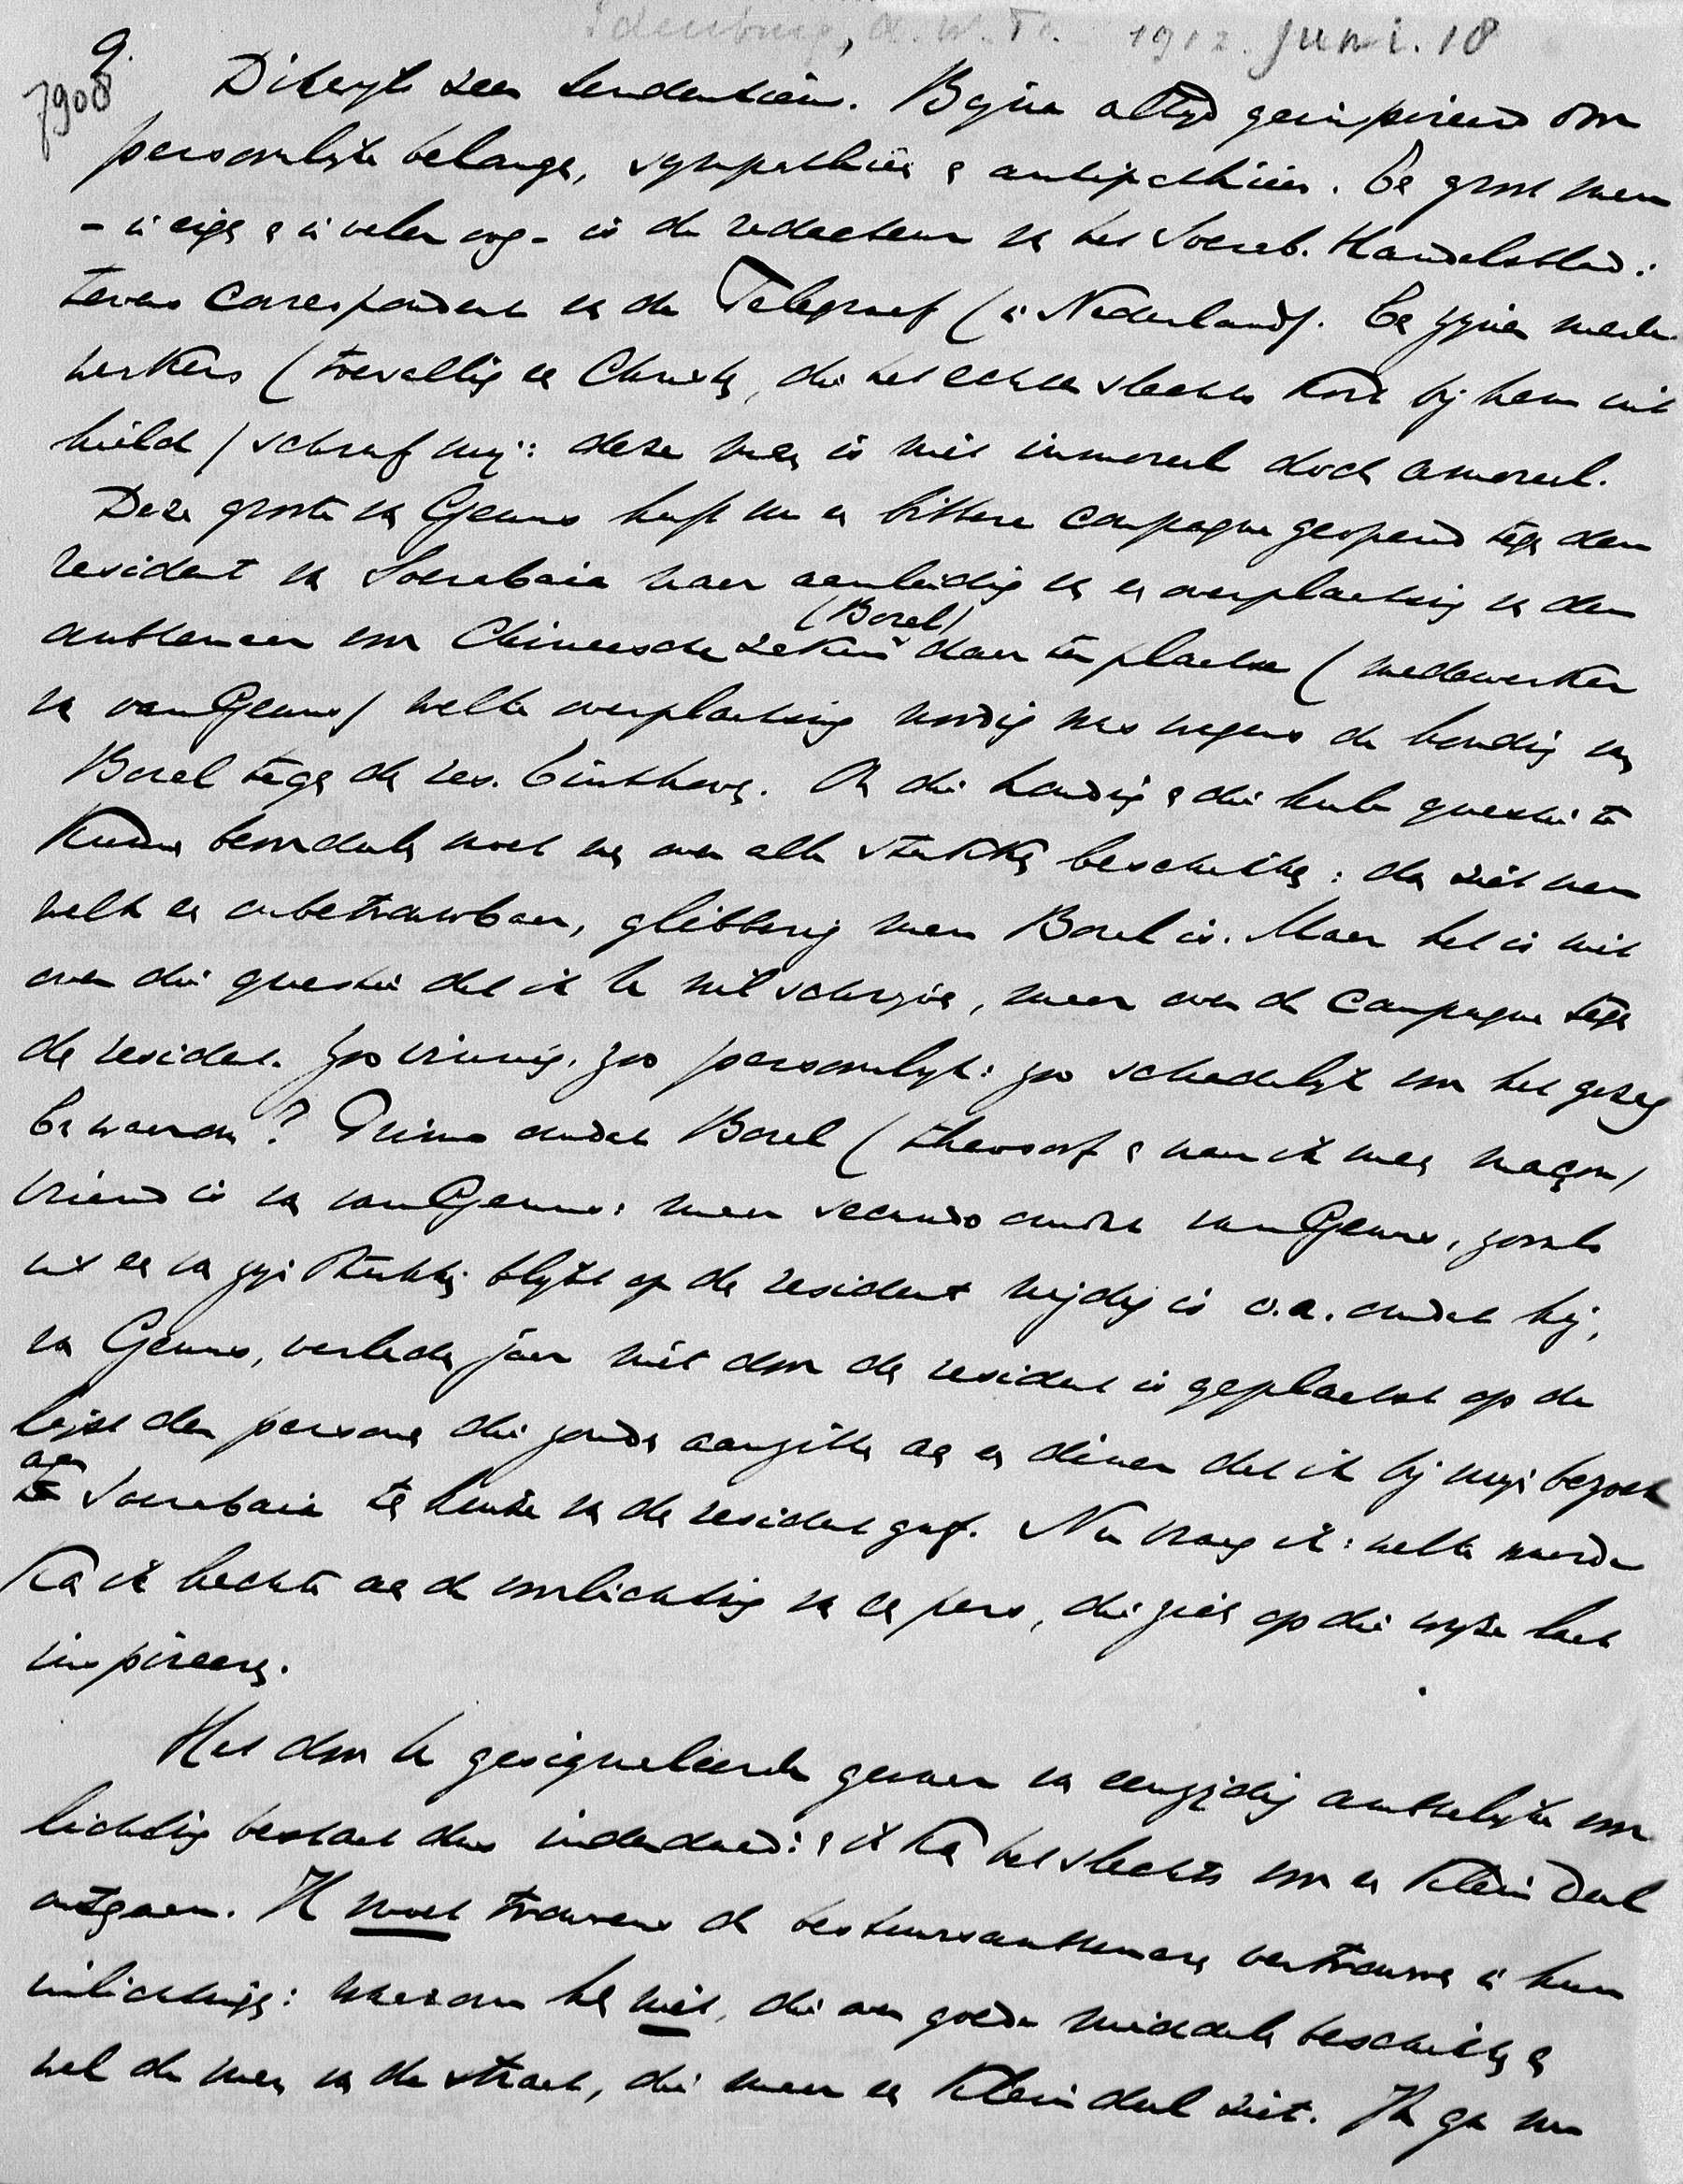 Idenburg, A.W.F. 1912. Juni. 18
9.
7908
Dikwijls zeer tendentieus. Bijna altijd geinspireerd door
persoonlijke belangen, sympathieën & antipathieën. Een groot man
– in eigen & in veler oog – is de redacteur van het Soerab. Handelsblad:
tevens correspondent van de Telegraaf (in Nederland). Een zijner mede-
werkers (toevallig een Christen, die het echter slechts kort bij hem uit
hield) schreef mij: deze man is niet immoreel doch amoreel.
Deze groote van Geuns heeft nu een bittere campagne geopend tegen den
resident van Soerabaia naar aanleiding van een overplaatsing van den
ambtenaar voor Chineesche zaken (Borel) daar ter plaatse (medewerker
van van Geuns) welke overplaatsing noodig was wegens de houding van
Borel tegen de res. Om die houding & die heele questie te
kunnen beoordeelen moet men over alle stukken beschikken: dan ziet men
welk een onbetrouwbaar, glibberig man Borel is. Maar het is niet
over die questie dat ik U wil schrijven, maar over de campagne tegen
de resident. Zoo vinnig, zoo persoonlijk: zoo schadelijk voor het gezag
En waarom? Primo omdat Borel (theosoof & naar ik meen maçon)
vriend is van van Geuns: maar secundo omdat van Geuns, zooals
uit een van zijn stukken blijkt op de resident nijdig is o.a. omdat hij,
van Geuns, verleden jaar niet door de resident is geplaatst op de
lijst der personen die zouden aanzitten aan een diner dat ik bij mijn bezoek
aan
te Soerabaia ten huize van de resident gaf. Nu vraag ik: welke waarde
kan ik hechten aan de voorlichting van een pers, die zich op die wijze laat
inspireeren.
Het door U gesignaleerde gevaar van eenzijdig ambtelijke voor-
lichting bestaat dus inderdaad: & ik kan het slechts voor een klein deel
ontgaan. Ik moet trouwens de bestuursambtenaren vertrouwen in hun
inlichtingen: waarom hen niet, die over goede middelen beschikken &
wel de man van de straat, die maar een klein deel ziet. Ik ga nu